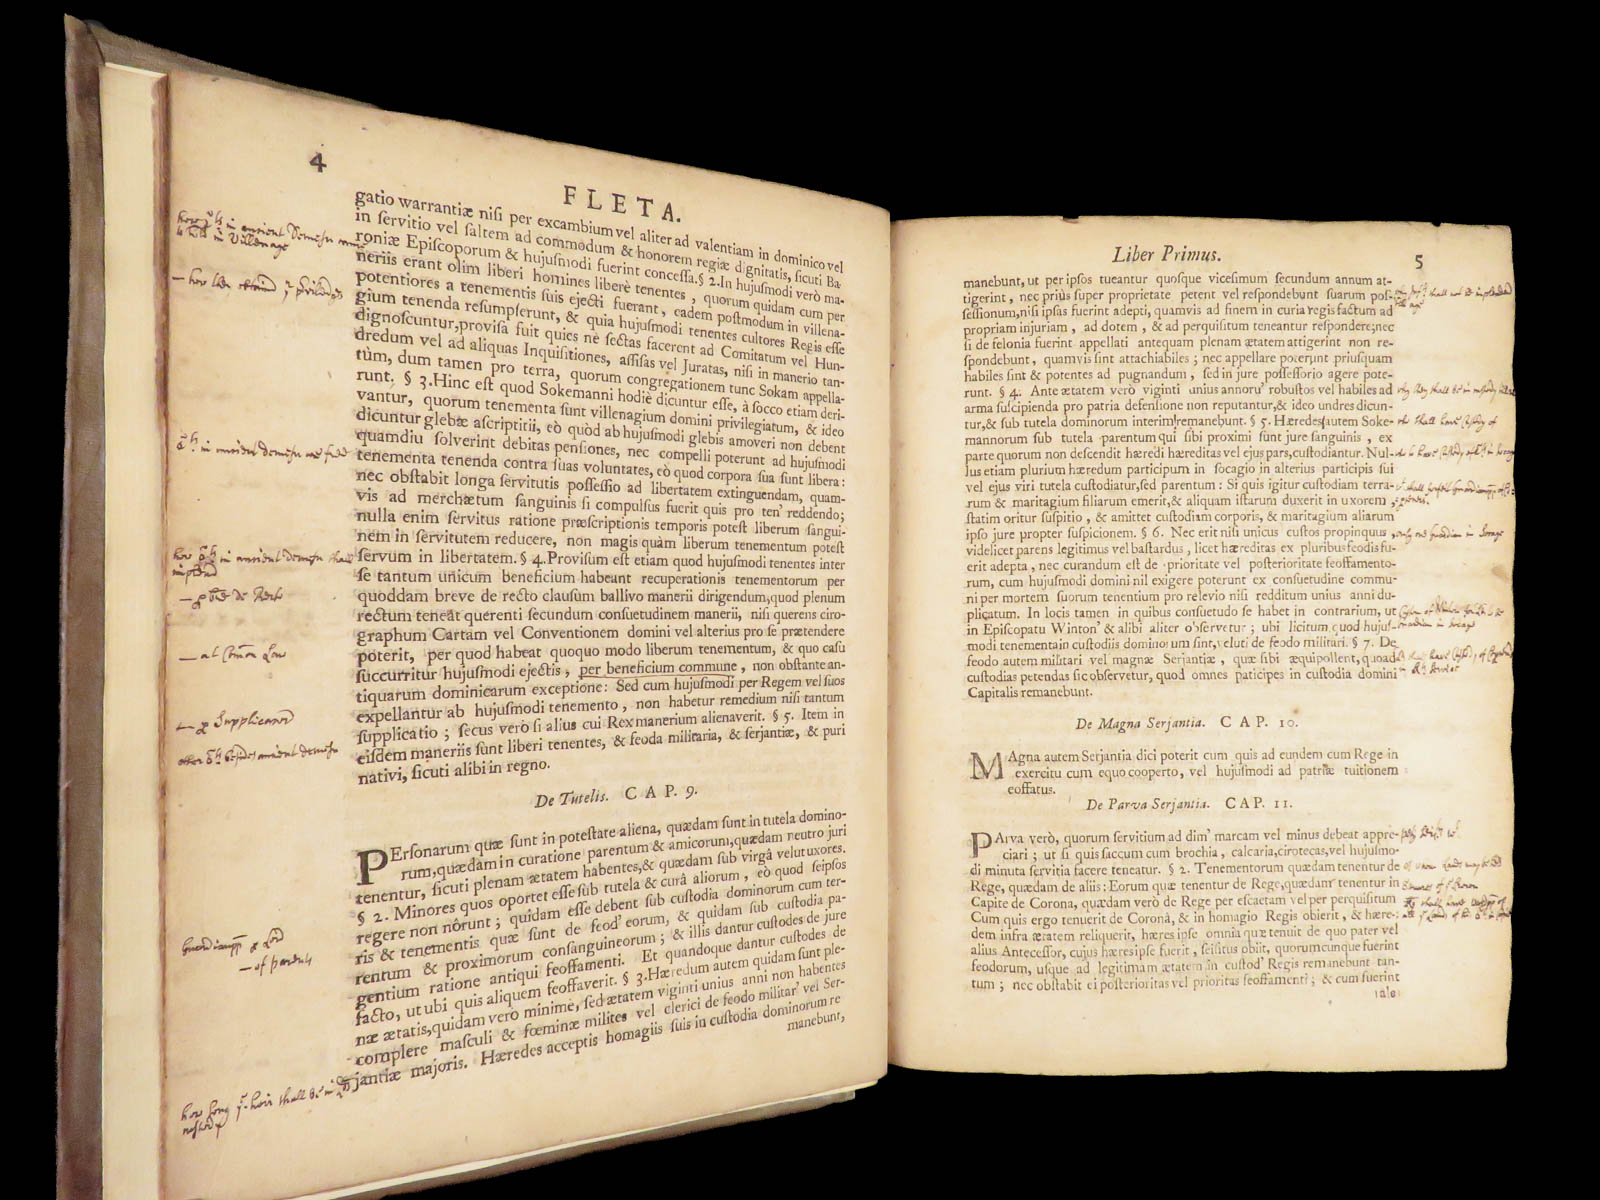 4
FLETA.
gatio warrantiæ niſi per excambium vel aliter ad valentiam in dominico vel
in ſervitio vel ſaltem ad commodum & honorem regiæ dignitatis, ſicuti Ba
roniæ Epiſcoporum & hujuſmodi fuerint conceſſa. § 2. In hujuſmodi verò ma-
neriis erant olim liberi homines liberè tenentes, quorum quidam cum per
potentiores a tenementis ſuis ejecti fuerant, eadem poſtmodum in villena-
gium tenenda reſumpſerunt, & quia hujuſmodi tenentes cultores Regis eſſe
dignoſcuntur, proviſa fuit quies nè ſectas facerent ad Comitatum vel Hun-
dredum vel ad aliquas Inquiſitiones, aſſiſas vel Juratas, niſi in manerio tan-
tùm, dum tamen pro terra, quorum congregationem tunc Sokam appella-
runt. § 3. Hinc eſt quod Sokemanni hodiè dicuntur eſſe, à ſocco etiam deri-
vantur, quorum tenementa ſunt villenagium domini privilegiatum, & ideo
dicuntur glebæ aſcriptitii, eò quòd ab hujuſmodi glebis amoveri non debent
quamdiu ſolverint debitas penſiones, nec compelli poterunt ad hujuſmodi
tenementa tenenda contra ſuas voluntates, eò quod corpora ſua ſunt libera:
nec obſtabit longa ſervitutis poſſeſſio ad libertatem extinguendam, quam-
vis ad merchætum ſanguinis ſi compulſus fuerit quis pro ten' reddendo;
nulla enim ſervitus ratione præſcriptionis temporis poteſt liberum ſangui-
nem in ſervitutem reducere, non magis quàm liberum tenementum poteſt
ſervum in libertatem. § 4. Proviſum eſt etiam quod hujuſmodi tenentes inter
ſe tantum unicum beneficium habeant recuperationis tenementorum per
quoddam breve de recto clauſum ballivo manerii dirigendum, quod plenum
rectum teneat querenti ſecundum conſuetudinem manerii, niſi querens ciro-
graphum Cartam vel Conventionem domini vel alterius pro ſe prætendere
poterit, per quod habeat quoquo modo liberum tenementum, & quo caſu
ſuccurritur hujuſmodi ejectis, per beneficium commune, non obſtante an-
tiquarum dominicarum exceptione: Sed cum hujuſmodi per Regem vel ſuos
expellantur ab hujuſmodi tenemento, non habetur remedium niſi tantum
ſupplicatio; ſecus verò ſi alius cui Rex manerium alienaverit. § 5. Item in
eiſdem maneriis ſunt liberi tenentes, & feoda militaria, & ſerjantiæ, & puri
nativi, ſicuti alibi in regno.
De Tutelis. CAP. 9.
PErſonarum quæ ſunt in poteſtate aliena, quædam ſunt in tutela domino-
rum, quædam in curatione parentum & amicorum, quædam neutro juri
tenentur, ſicuti plenam ætatem habentes, & quædam ſub virgâ velut uxores.
§ 2. Minores quos oportet eſſe ſub tutela & curâ aliorum, eò quod ſeipſos
regere non nôrunt; quidam eſſe debent ſub cuſtodia dominorum cum ter-
ris & tenementis quæ ſunt de feod' eorum, & quidam ſub cuſtodia pa-
rentum & proximorum conſanguineorum; & illis dantur cuſtodes de jure
gentium ratione antiqui feoffamenti. Et quandoque dantur cuſtodes de
facto, ut ubi quis aliquem feoffaverit. § 3. Hæredum autem quidam ſunt ple-
næ ætatis, quidam verò minimè, ſed ætatem viginti unius anni non habentes
complere maſculi & fœminæ milites vel clerici de feodo militar' vel Ser-
jantiæ majoris. Hæredes acceptis homagiis ſuis in cuſtodia dominorum re
manebunt,
Liber Primus.
5
manebunt, ut per ipſos tueantur quoſque viceſimum ſecundum annum at-
tigerint, nec priùs ſuper proprietate petent vel reſpondebunt ſuarum poſ-
ſeſſionum, niſi ipſas fuerint adepti, quamvis ad finem in curia regis factum ad
propriam injuriam, ad dotem, & ad perquiſitum teneantur reſpondere; nec
ſi de felonia fuerint appellati antequam plenam ætatem attigerint non re-
ſpondebunt, quamvis ſint attachiabiles; nec appellare poterunt priuſquam
habiles ſint & potentes ad pugnandum, ſed in jure poſſeſſorio agere pote-
runt. § 4. Ante ætatem verò viginti unius annoru' robuſtos vel habiles ad
arma ſuſcipienda pro patria defenſione non reputantur, & ideo undres dicun-
tur, & ſub tutela dominorum interim remanebunt. § 5. Hæredes autem Soke-
mannorum ſub tutela parentum qui ſibi proximi ſunt jure ſanguinis, ex
parte quorum non deſcendit hæredi hæreditas vel ejus pars, cuſtodiantur. Nul-
lus etiam plurium hæredum participum in ſocagio in alterius participis ſui
vel ejus viri tutela cuſtodiatur, ſed parentum: Si quis igitur cuſtodiam terra-
rum & maritagium filiarum emerit, & aliquam iſtarum duxerit in uxorem
ſtatim oritur ſuſpitio, & amittet cuſtodiam corporis, & maritagium aliarum
ipſo jure propter ſuſpicionem. § 6. Nec erit niſi unicus cuſtos propinquus
videlicet parens legitimus vel baſtardus, licet hæreditas ex pluribus feodis fu-
erit adepta, nec curandum eſt de prioritate vel poſterioritate feoffamento-
rum, cum hujuſmodi domini nil exigere poterunt ex conſuetudine commu-
ni per mortem ſuorum tenentium pro relevio niſi redditum unius anni du-
plicatum. In locis tamen in quibus conſuetudo ſe habet in contrarium, ut
in Epiſcopatu Winton' & alibi aliter obſervetur; ubi licitum quod hujuſ-
modi tenementa in cuſtodiis dominorum ſint, veluti de feodo militari. § 7. De
feodo autem militari vel magnæ Serjantiæ, quæ ſibi æquipollent, quoad
cuſtodias petendas ſic obſervetur, quod omnes paticipes in cuſtodia domini
Capitalis remanebunt.
De Magna Serjantia. CAP. 10.
MAgna autem Serjantia dici poterit cum quis ad eundem cum Rege in
exercitu cum equo cooperto, vel hujuſmodi ad patriæ tuitionem
eoffatus.
De Parva Serjantia. CAP. 11.
PArva verò, quorum ſervitium ad dim' marcam vel minus debeat appre-
ciari; ut ſi quis ſaccum cum brochia, calcaria, cirotecas, vel hujuſmo-
di minuta ſervitia facere teneatur. § 2. Tenementorum quædam tenentur de
Rege, quædam de aliis: Eorum quæ tenentur de Rege, quædam tenentur in
Capite de Corona, quædam verò de Rege per eſcaetam vel per perquiſitum
Cum quis ergo tenuerit de Coronâ, & in homagio Regis obierit, & hære-
dem infra ætatem reliquerit, hæres ipſe omnia quæ tenuit de quo pater vel
alius Anteceſſor, cujus hæres ipſe fuerit, ſeiſitus obiit, quorumcunque fuerint
feodorum, uſque ad legitimam ætatem in cuſtod' Regis remanebunt tan-
tum; nec obſtabit ei poſterioritas vel prioritas feoffamenti; & cum fuerint